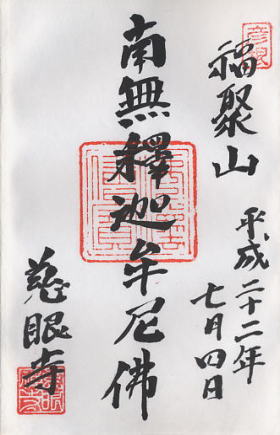 彦根
福聚山
平成二十二年
七月四日
南無釋迦牟尼佛
慈眼寺